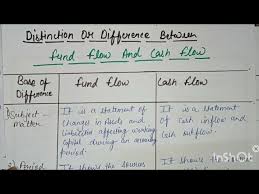 Distinction Or Difference Between
Fund Flow And Cash Flow
Base of Difference
Fund Flow
Cash Flow
1) Subject-
matter
It is a statement of
changes in Assets and
Liabilities affecting working
capital during an accounting
period.
It is a Statement
of cash inflow and
cash outflow.
2) Period
It shows the sources
It shows the
InShOt